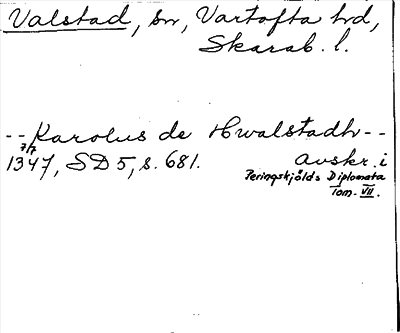 Valstad, sn, Vartofta hd,
Skarab. l.
-- Karolus de Hwalstadh --
7/7
1347, SD 5, s. 681. avskr. i
Peringskjölds Diplomata
Tom. VII.